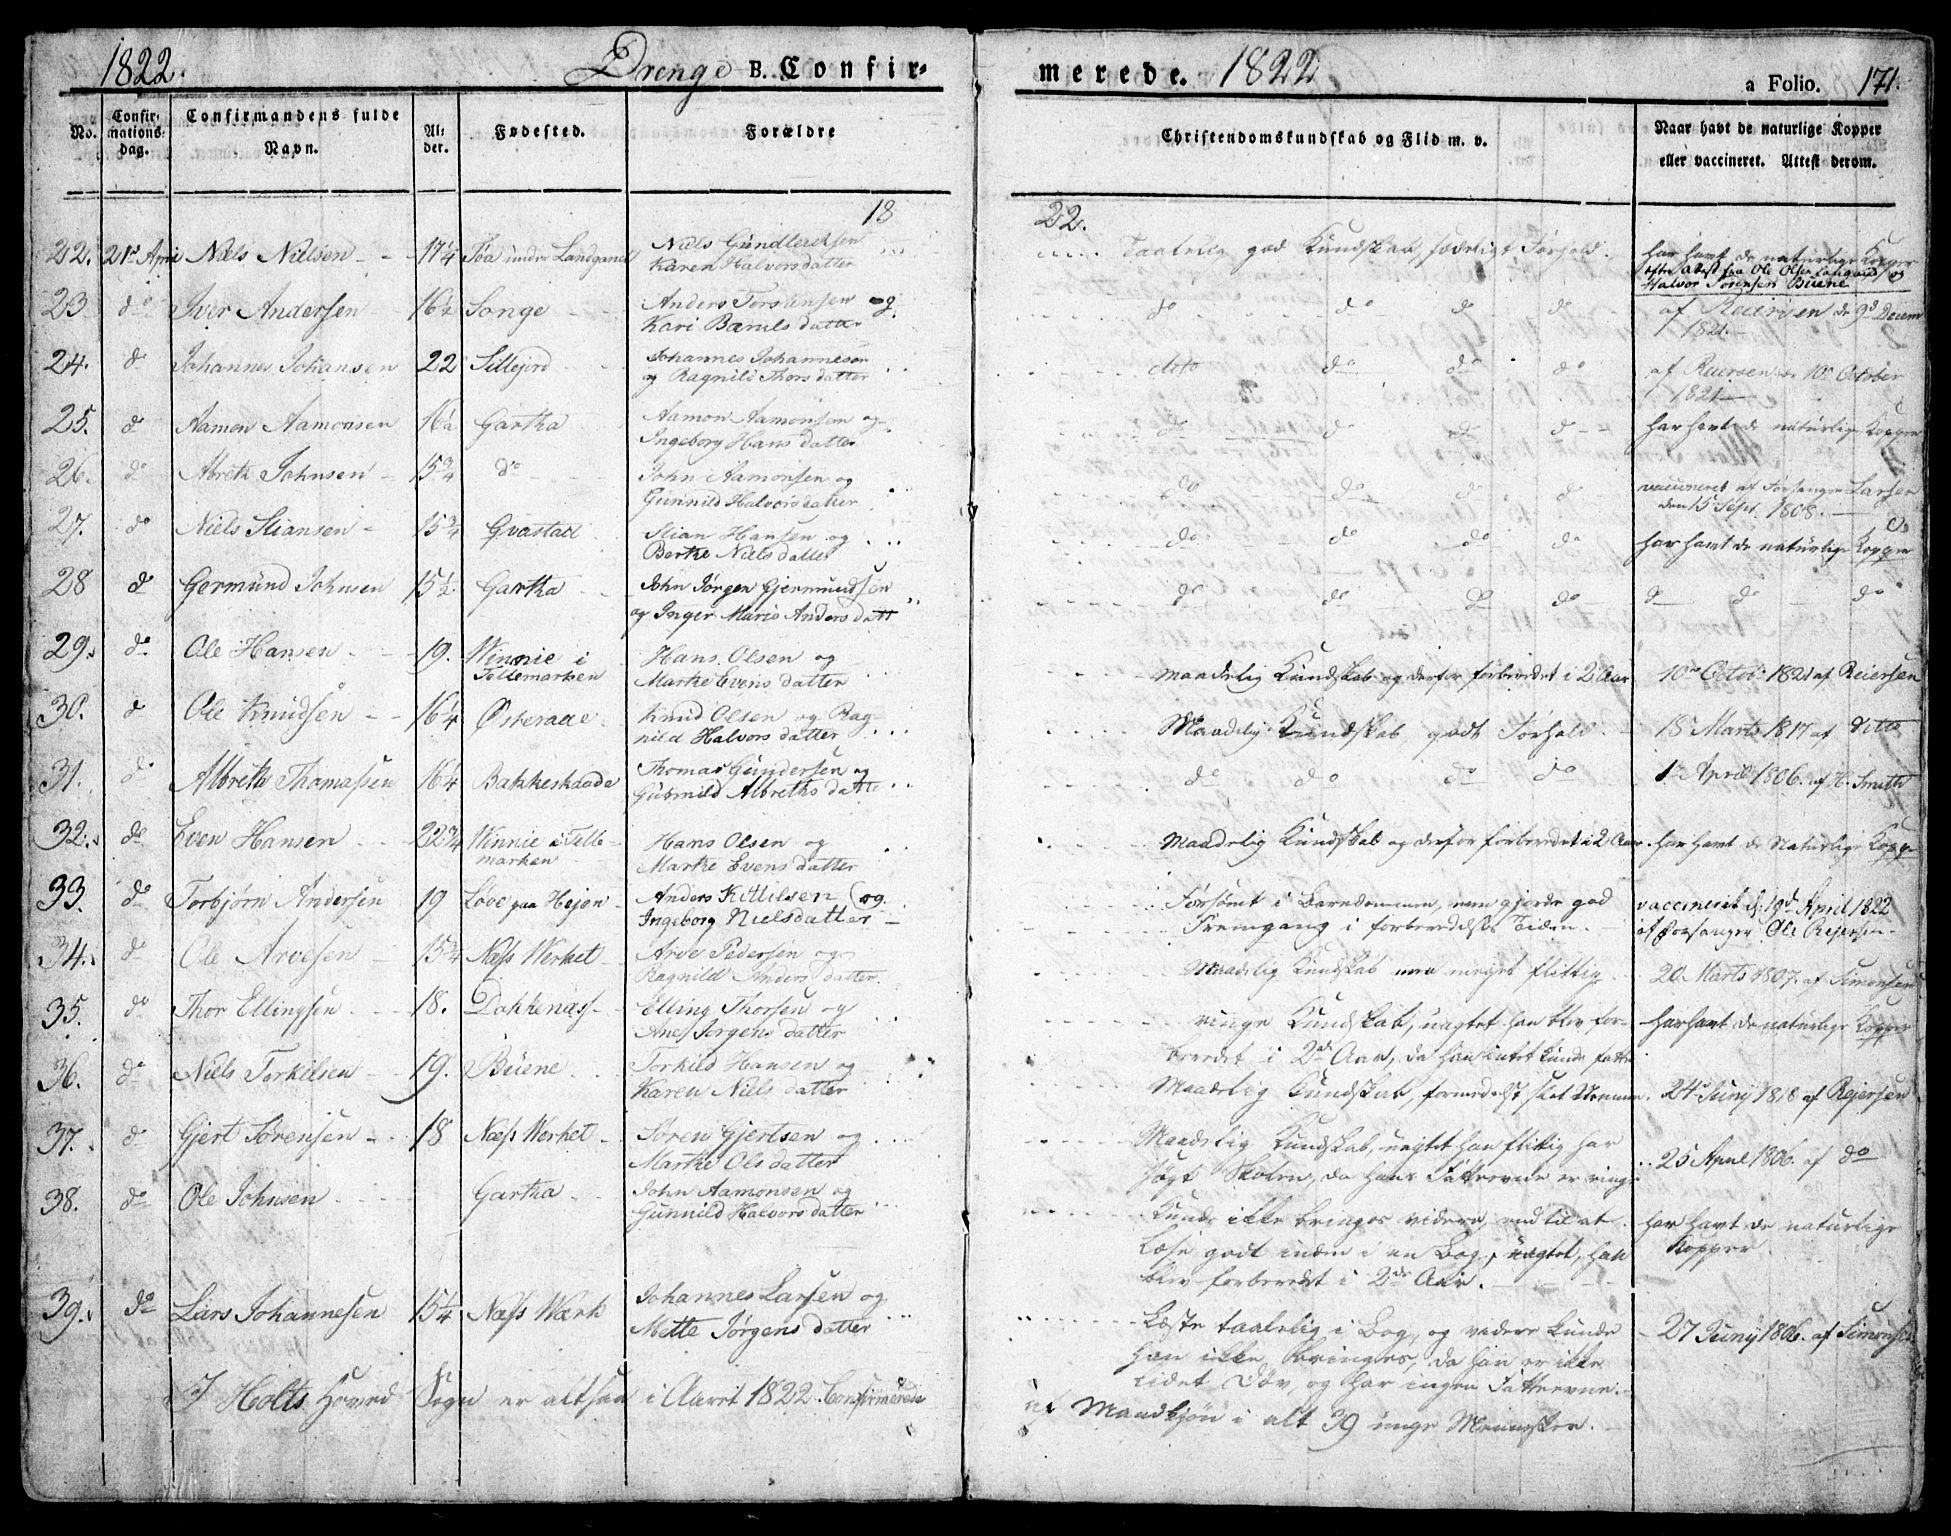 1822. Drenge B. Confir- merede. 1822 a Folio. 171.
No. Confir- mations- dag. Confirmandens fulde Navn. Al- der. Fødested. Forældre Christendomskundskab og Flid m. v. Naar havt de naturlige Kopper eller vaccineret. Attest derom.
18 22.
22. 21d April Niels Nielsen 17¼ under Landgaard Niels Gundersen
Karen Halvorsdatter Taalelig god Kundskab, sædeligt Forhold. har havt de naturlige Kopper
efter Attest fra Ole Olsen og
Halvor Sørensen Buene
23 do Iver Andersen 16½ Songe Anders Tersensen og
Kari Bærulsdatter do do do do af Reiersen de 9d Decem
1821.
24. do Johannes Johansen 22 Sillejord Johannes Johannesen
og Ragnild Thorsdatter dito do do do af Reiersen 10d October
1821
25. do Aamon Aamonsen 16½ Gartha Aamon Aamonsen og
Ingeborg Hansdatter do do do do har havt de naturlige Kopper
26. do Abreth Johnsen 15¾ do John Aamonsen og
Gunnild Halvorsdatter do do do do vaccineret af Forsanger Larsen
den 15 Sept. 1808.
27. do Niels Stiansen 15¾ Gvastad Stian Hansen og
Berthe Nielsdatter do do do do har havt de naturlige Kopper
28 do Germund Johnsen 15½ Gartha John Jørgen Gjermundsen
og Inger Marie Andersdatt do do do do do do do
29. do Ole Hansen 19. Winnie i
Tellemarken Hans Olsen og
Marthe Evensdatter maadelig Kundskab og derfor forberedet i 2 Aar 10de Octob. 1821 af Reiersen
30. do Ole Knudsen 16¼ Østeraae Knud Olsen og Rag-
nild Halvorsdatter Maadelig Kundskab, godt Forhold. 18 Marts 1817 af ditto
31. do Albreth Thomassen 16¼ Bakkeskaade Thomas Gundersen og
Gubnild Albrethsdatte do do do do 1 April 1806. af H. Smith
32. do Even Hansen 22¾ Winnie i Telle-
marken Hans Olsen og
Marthe Evensdatter Maadelig Kundskab og derfor forberedet i 2 Aar har havt de Naturlige Kopp
33. do Torbjørn Andersen 19 Løve paa Hejen Anders Kittilsen og
Ingeborg Nielsdatter Forsømt i Barndommen, men gjorde god
Fremgang i forberedelses Tiden. vaccineret d. 19d April 1822
af Forsanger Ole Rejersen.
34. do Ole Arvesen 15¾ Næss Werket Arve Pedersen og
Ragnild Andersdatter. Maadelig Kundskab men meget flittig. 20 Marts 1807. af Simonsen
35. do Thor Ellingsen 18. Dakkenæss Elling Thorsen og
Ane Jørgensdatter ringe Kundskab, uagtet han blev for-
beredet i 2de Aar, da han intet kunde fatte har havt de naturlige Kopper
36. do Niels Torkilsen 19. Buene Torkild Hansen og
Karen Nielsdatter Maadelig Kundskab, formedelst slet Nemme. 24 Juny 1818 af Rejersen
37. do Gjert Sørensen 18 Næss Werket Søren Gjertsen og
Marthe Olsdatter Maadelig Kundskab, uagtet han flittig har
søgt Skolen, da hans Fatteevne er ringe 25 April 1806. af do
38. do Ole Johnsen Gartha John Aamonsen og
Gunnild Halvorsdatter Kunde ikke bringes videre, end til at
læse godt inden i en Bog, uagtet han
blev forberedet i 2de Aar. har havt de naturlige
Kopper.
39. do Lars Johannesen 15¼ Næss Wærk Johannes Larsen og
Mette Jørgensdatter Læste taalelig i Bog, og videre kunde
han ikke bringes, da han er ikke
lidet Døv, og har ingen Fatteevne. 27 Juny 1806. af Simonsen
I Holts Hoved Sogn er altsaa i Aaret 1822 Confirmerede
af Mandkjøn i alt 39 unge Mennesker.